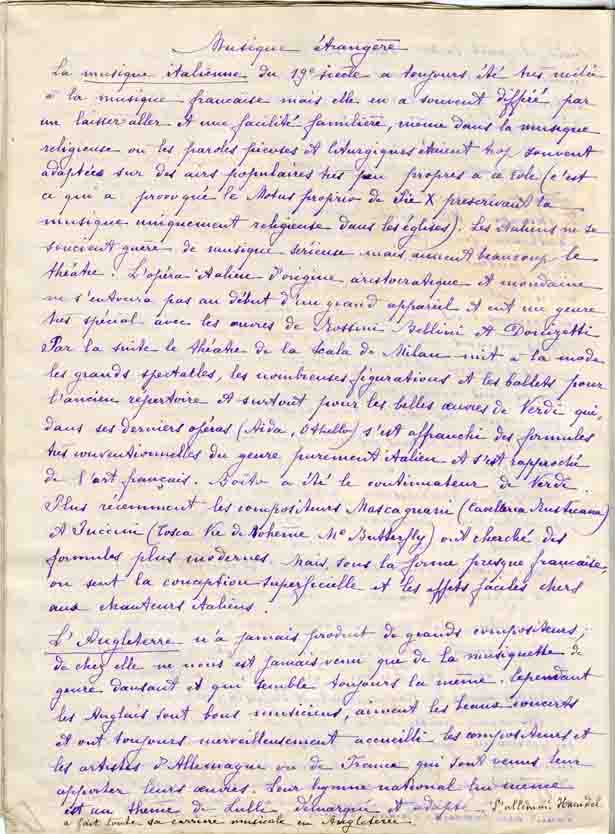 Musique étrangère
La musique italienne du 19e siècle a toujours été très mêlée
à la musique française mais elle en a souvent différé par
un laisser aller et une facilité familière, même dans la musique
religieuse ou les paroles pieuses et liturgiques étaient trop souvent
adaptées sur des airs populaires très peu propres à ce rôle (c'est
ce qui a provoqué le Motus proprio de Pie X prescrivant la
musique uniquement religieuse dans les églises). Les Italiens ne se
soucient guère de musique sérieuse mais aiment beaucoup le
théâtre. L'opéra italien d'origine aristocratique et mondaine
ne s'entoura pas au début d'un grand appareil et eut un genre
très spécial avec les œuvres de Rossini Bellini et Donizetti
Par la suite le théâtre de la Scala de Milan mit à la mode
les grands spectacles, les nombreuses figurations et les ballets pour
l'ancien répertoire et surtout pour les belles œuvres de Verdi qui,
dans ses derniers opéras (Aïda, Othello) s'est affranchi des formules
très conventionnelles du genre purement italien et s'est rapproché
de l'art français. Boïto a été le continuateur de Verdi.
Plus récemment les compositeurs Mascagnani (Cavalleria Rusticana)
et Puccini (Tosca Vie de Bohème Me Butterfly) ont cherché des
formules plus modernes. Mais, sous la forme presque française,
on sent la conception superficielle et les effets faciles chers
aux chanteurs italiens.
L'Angleterre n'a jamais produit de grands compositeurs;
de chez elle ne nous est jamais venu que de la musiquette de
genre dansant et qui semble toujours la même. Cependant
les Anglais sont bons musiciens, aiment les beaux concerts
et ont toujours merveilleusement accueilli les compositeurs et
les artistes d'Allemagne ou de France qui sont venus leur
apporter leurs œuvres. Leur hymne national lui-même
est un thème de Lulli démarqué et adapté. L'allemand Haendel
a fait toute sa carrière musicale en Angleterre.